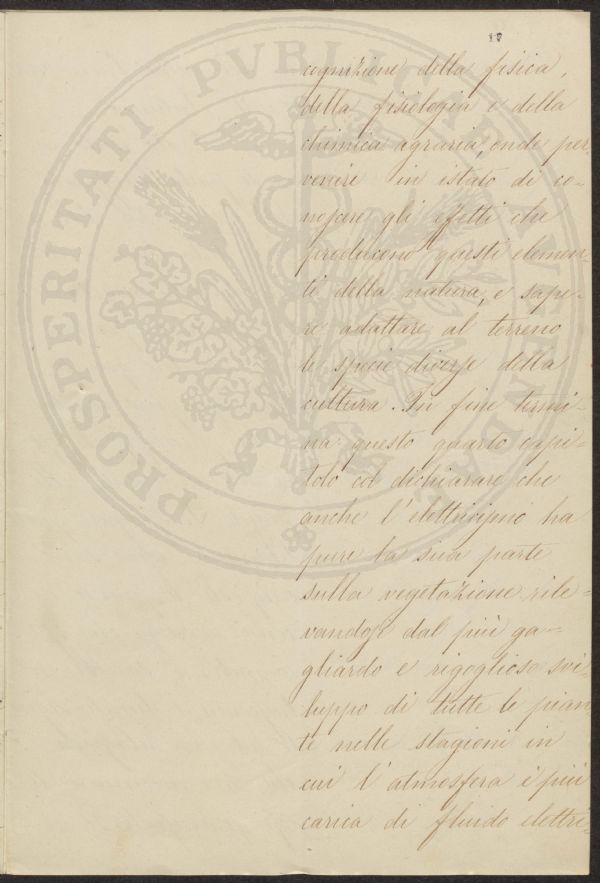 17
cognizione della fisica,
della fisiologia e della
chimica agraria, onde per
venire in istato di co-
noscere gli effetti che
producono questi elemen-
ti della natura, e sape-
re adattare al terreno
le specie diverse della
cultura. In fine termi-
na questo quarto capi-
tolo col dichiarare che
anche l'elettricismo ha
pure la sua parte
sulla vegetazione rile-
vandosi dal più ga-
gliardo e rigoglioso svi-
luppo di tutte le pian
te nelle stagioni in
cui l'atmosfera è più
carica di fluido elettri-
PROSPERITATI PVBLICAE AVGENDAE